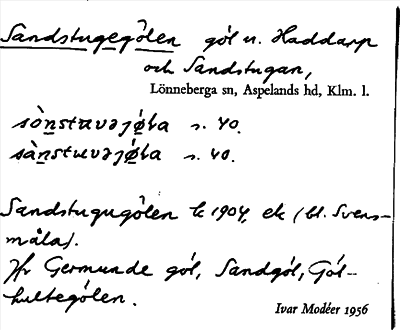 Sandstugegölen göl n. Haddarp
och Sandstugan,
Lönneberga sn, Aspelands hd, Klm. l.
s. 40.
s. 40.
Sandstugugölen k 1904, ek (bl. Svens-
måla).
Jfr Germunde göl, Sandgöl, Göl-
hultegölen.
Ivar Modéer 1956